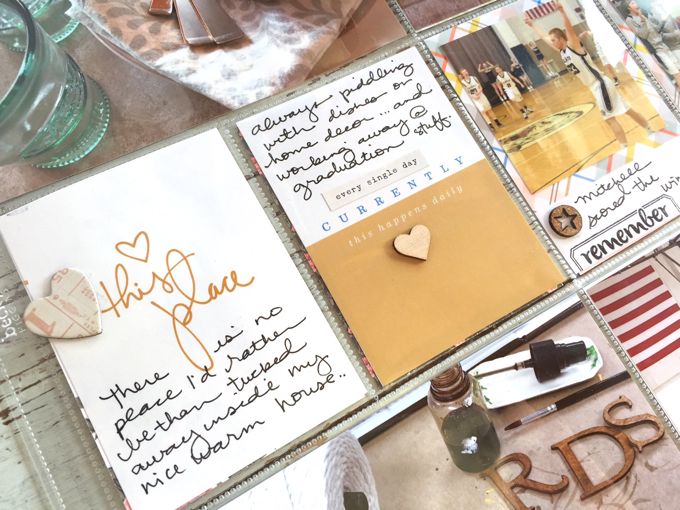 this
place
there is no
place I'd rather
be than tucked
away inside my
nice warm house..
always piddling
with dishes or
home decor...and
working away @
graduation stuff.
every single day
CURRENTLY
this happens daily
mitchell
scored the win
remember
RDS